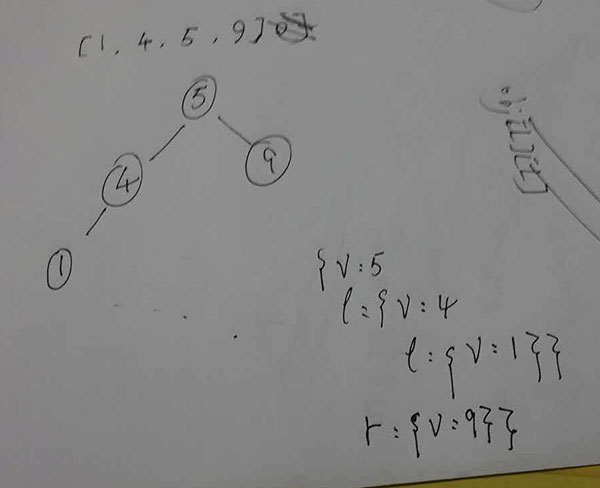 [1, 4, 5, 9]
5
4
9
1
{ v : 5
l : { v : 4
l : { v : 1 } }
r : { v : 9 } }